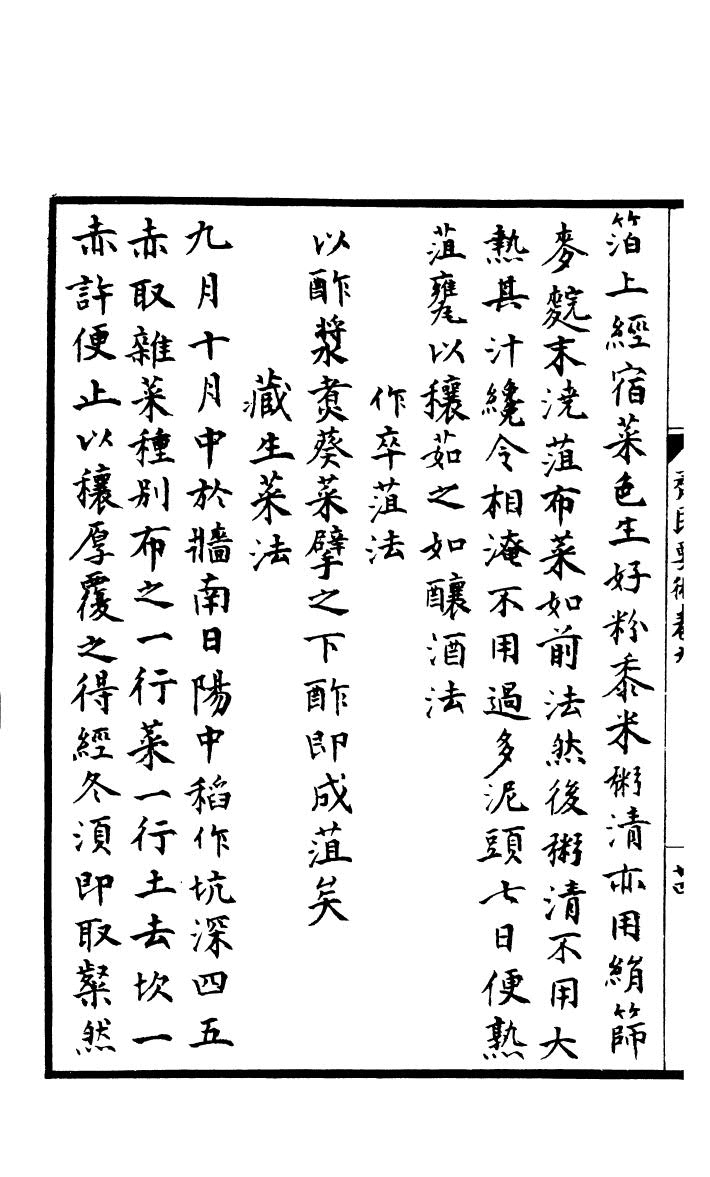 箔上經宿菜色生好粉黍米粥清亦用絹篩
麥䴷末澆葅布菜如前法然後粥清不用大
熱其汁纔令相淹不用過多泥頭七日便熟
葅甕以穰茹之如釀酒法
作卒葅法
以酢漿煑葵菜擘之下酢即成葅矣
藏生菜法
九月十月中於牆南日陽中稻作坑深四五
赤取雜菜種别布之一行菜一行土去坎一
赤許便止以穰厚覆之得經冬須即取粲然
齊民要術卷九
廿四